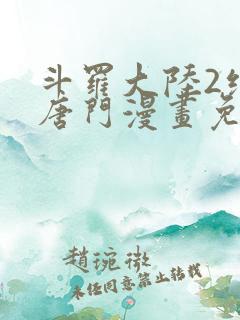 斗羅大陸2
唐門漫畫免
趙琬微
未經同意禁止轉載